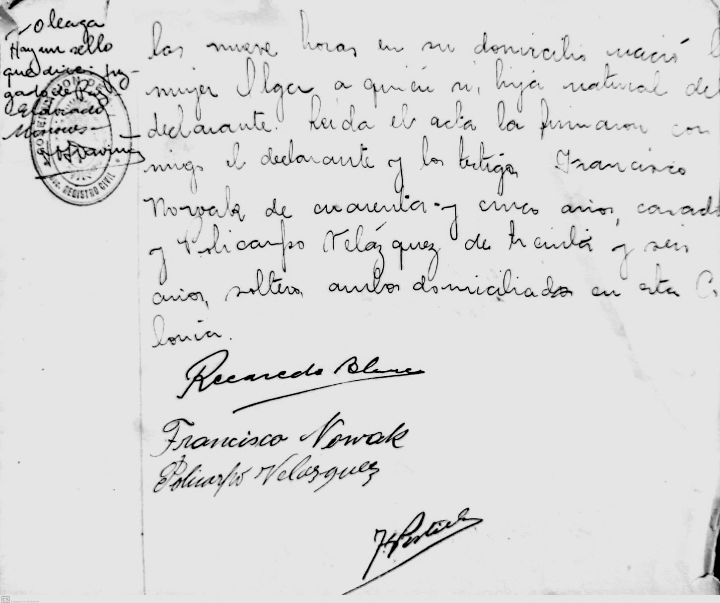 Oleaga
Hay un sello
que dice: juz-
gado de Paz
Eldorado
Misiones
REGISTRO CIVIL
las nueve horas en su domicilio nació l
mujer Olga, a quién vi, hija natural del
declarante. Leida el acta la firmaron con
migo el declarante y los testigos Francisco
Nowak de cuarenta y cinco años, casado
y Policarpo Velázquez de treinta y seis
años, soltero, ambos domiciliados en esta Co
lonia.
Recaredo Blanco
Francisco Nowak
Policarpo Velasquez